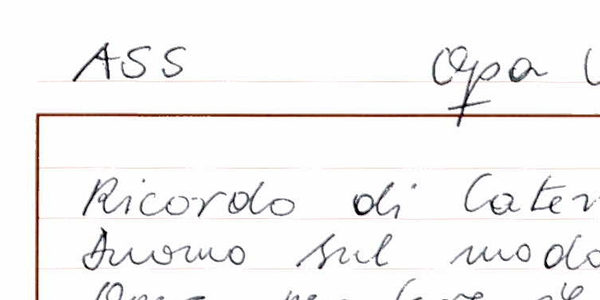 ASS Opa
Ricordo di Cater
Suono sul modo